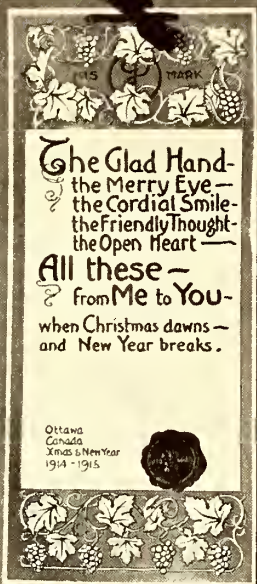 MARK
The Glad Hand-
the Merry Eye—
the Cordial Smile-
the Friendly Thought-
the Open Heart —
All these ~
from Me to You-
when Christmas dawns ~
and New Year breaks.
Ottawa
Canada
Xmas & New Year
1914-1915